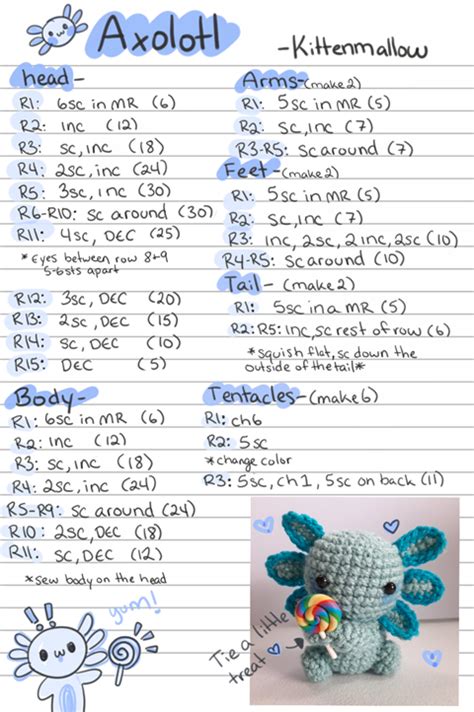 Axolotl
-Kittenmallow
head-
R1: 6sc in MR (6)
R2: inc (12)
R3: sc, inc (18)
R4: 2sc, inc (24)
R5: 3sc, inc (30)
R6-R10: sc around (30)
R11: 4sc, DEC (25)
*Eyes between row 8+9
5-6sts apart
R12: 3sc, DEC (20)
R13: 2sc, DEC (15)
R14: sc, DEC (10)
R15: DEC (5)
Body-
R1: 6sc in MR (6)
R2: inc (12)
R3: sc, inc (18)
R4: 2sc, inc (24)
R5-R9: sc around (24)
R10: 2sc, DEC (18)
R11: sc, DEC (12)
*sew body on the head
yum!
Arms-(make 2)
R1: 5sc in MR (5)
R2: sc, inc (7)
R3-R5: sc around (7)
Feet-(make 2)
R1: 5sc in MR (5)
R2: sc, inc (7)
R3: inc, 2sc, 2inc, 2sc (10)
R4-R5: sc around (10)
Tail- (make 2)
R1: 5sc in a MR (5)
R2:R5: inc, sc rest of row (6)
*squish flat, sc down the
outside of the tail*
Tentacles-(make 6)
R1: ch6
R2: 5sc
*change color
R3: 5sc, ch 1, 5sc on back (11)
Tie a little
treat